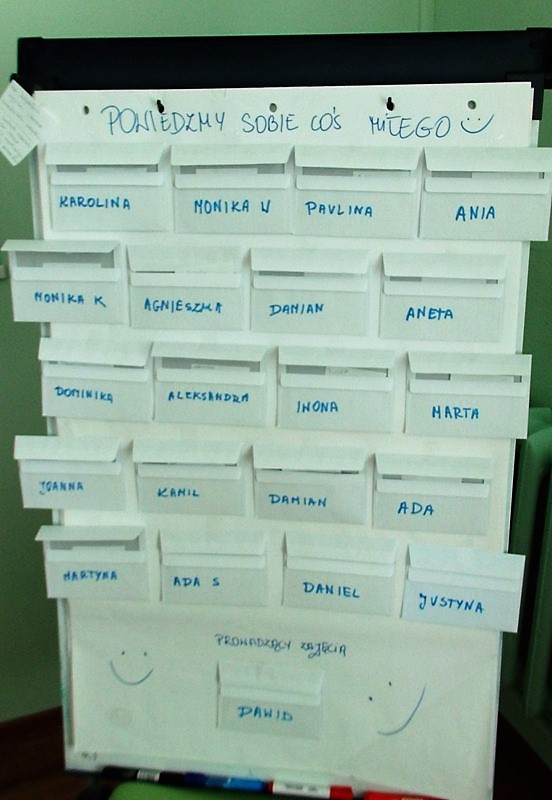 POWIEDZMY SOBIE COŚ MIŁEGO
KAROLINA
MONIKA W
PAULINA
ANIA
MONIKA K
AGNIESZKA
DAMIAN
ANETA
DOMINIKA
ALEKSANDRA
IWONA
MARTA
JOANNA
KAMIL
DAMIAN
ADA
MARTYNA
ADA S
DANIEL
JUSTYNA
PROWADZĄCY ZAJĘCIA
DAWID